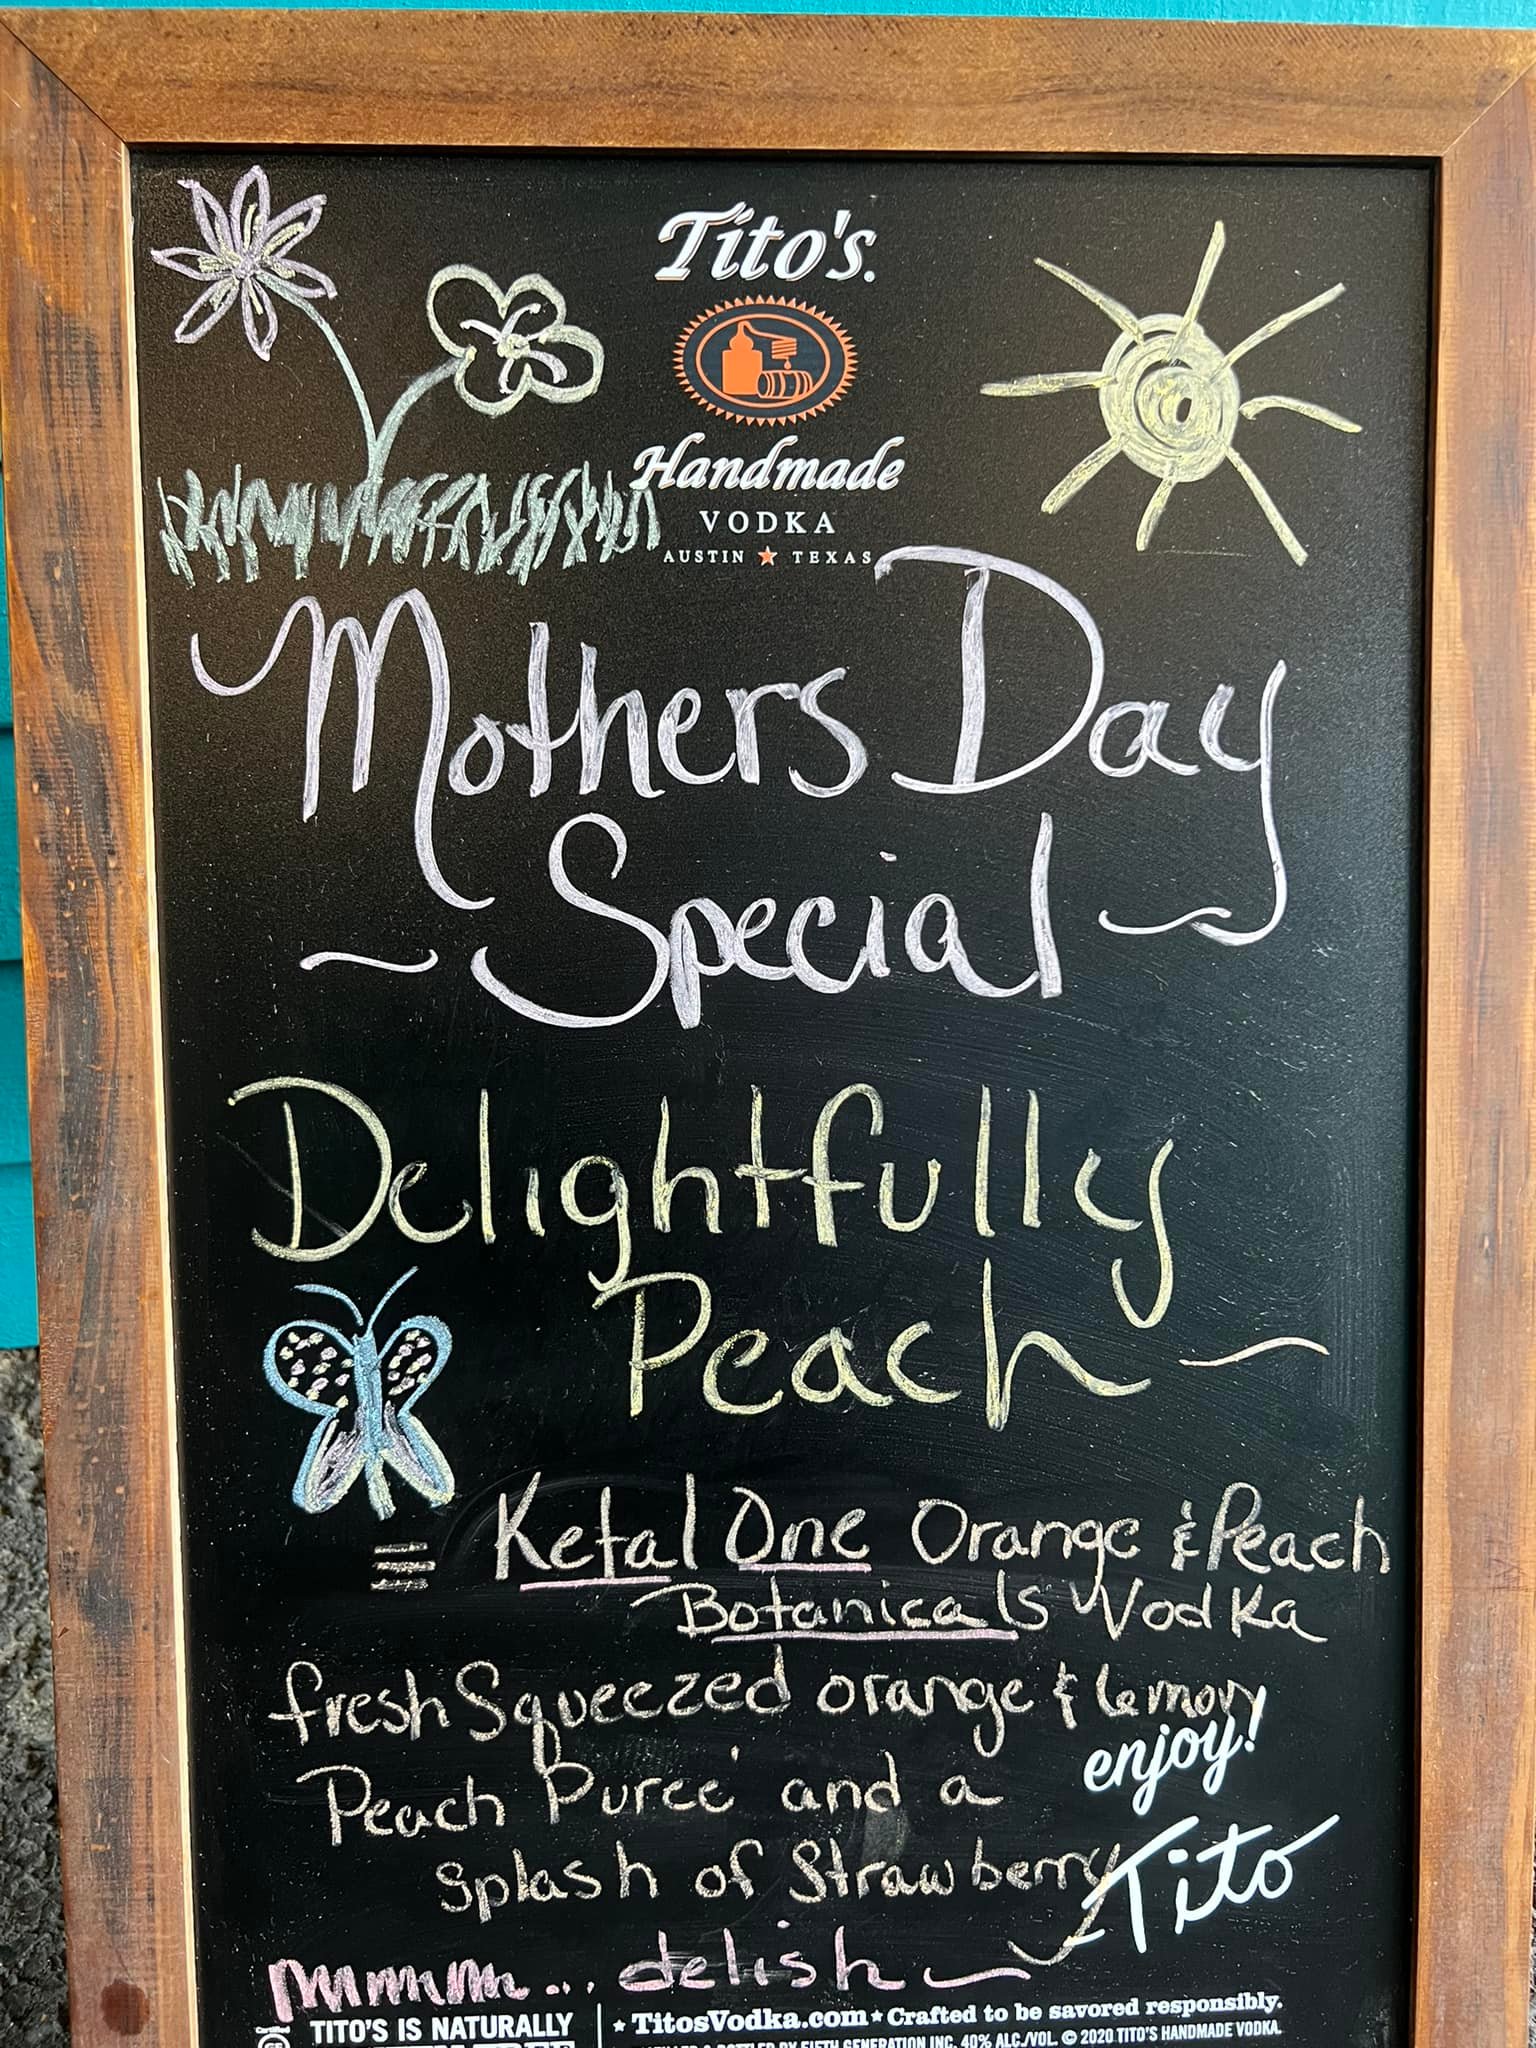 Tito's.
Handmade
VODKA
AUSTIN ★ TEXAS
Mothers Day
~ Special ~
Delightfully
Peach ~
= Ketal One Orange & Peach
Botanicals Vodka
fresh Squeezed orange & lemon
enjoy!
Peach Pureé and a
Splash of Strawberry
Tito
mmmm... delish ~
TITO'S IS NATURALLY
★ TitosVodka.com ★ Crafted to be savored responsibly.
BY FIFTH GENERATION INC. 40% ALC./VOL. © 2020 TITO'S HANDMADE VODKA.